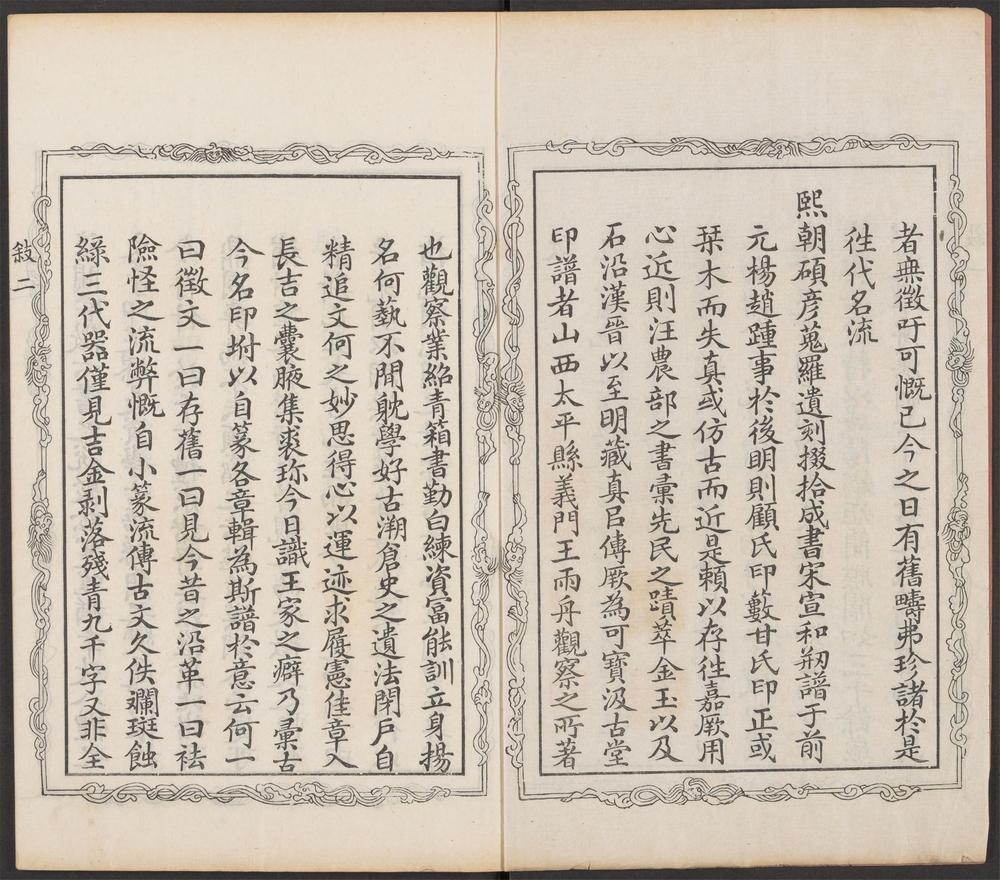 者無徵吁可慨已今之日有舊疇弗珍諸於是
徃代名流
熙朝碩彦蒐羅遺刻掇拾成書宋宣和刱譜于前
元楊趙踵事於後明則顧氏印藪甘氏印正或
棶木而失真或仿古而近是賴以存徃嘉厥用
心近則汪農部之書彙先民之蹟萃金玉以及
石沿漢晉以至明藏真㠯傳厥為可寶汲古堂
印譜者山西太平縣義門王雨舟觀察之所著
也觀察業紹青箱書勤白練資富能訓立身揚
名何藝不聞躭學好古溯倉史之遺法閉戶自
精追文何之妙思得心以運迹求履憲佳章入
長吉之囊腋集裘珎今日識王家之癖乃彙古
今名印坿以自篆各章輯為斯譜於意云何一
曰徵文一曰存舊一曰見今昔之沿革一曰祛
險怪之流弊慨自小篆流傳古文久佚斕斑蝕
綠三代器僅見吉金剥落殘青九千字又非全
敍二